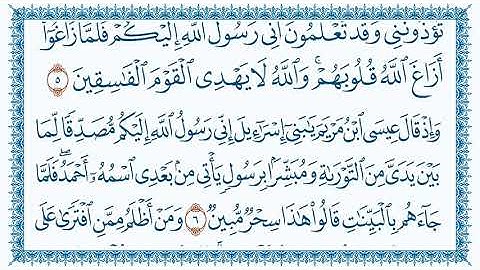 تُؤْذُونَنِي وَقَد تَّعْلَمُونَ أَنِّي رَسُولُ اللَّهِ إِلَيْكُمْ فَلَمَّا زَاغُوٓا۟
أَزَاغَ اللَّهُ قُلُوبَهُمْ ۚ وَاللَّهُ لَا يَهْدِي الْقَوْمَ الْفَاسِقِينَ ٥
وَإِذْ قَالَ عِيسَى ابْنُ مَرْيَمَ يَٰبَنِىٓ إِسْرَٰٓءِيلَ إِنِّي رَسُولُ اللَّهِ إِلَيْكُم مُّصَدِّقًا لِّمَا
بَيْنَ يَدَىَّ مِنَ التَّوْرَىٰةِ وَمُبَشِّرًۢا بِرَسُولٍ يَأْتِى مِنۢ بَعْدِى اسْمُهُۥٓ أَحْمَدُ ۖ فَلَمَّا
جَآءَهُم بِالْبَيِّنَٰتِ قَالُوا۟ هَٰذَا سِحْرٌ مُّبِينٌ ٦ وَمَنْ أَظْلَمُ مِمَّنِ افْتَرَىٰ عَلَى